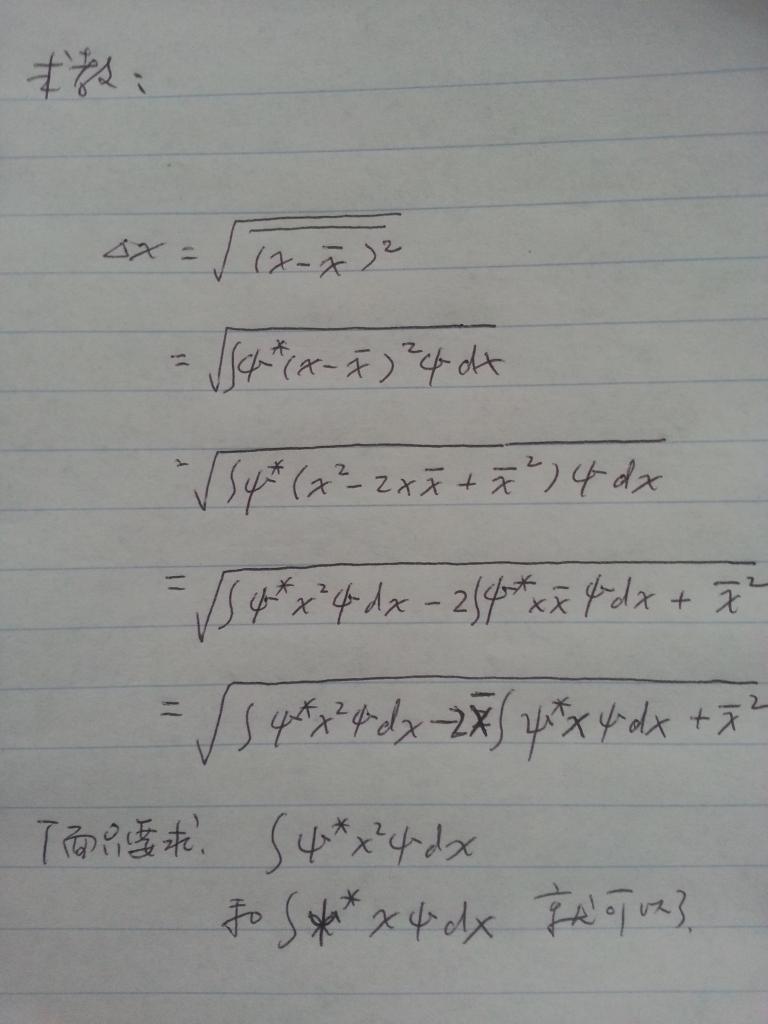 求教：
Δx = √(\overline{(x-x̄)²})
= √(∫ψ*(x-x̄)²ψdx)
= √(∫ψ*(x²-2xx̄+x̄²)ψdx)
= √(∫ψ*x²ψdx-2∫ψ*xx̄ψdx+x̄²)
= √(∫ψ*x²ψdx-2x̄∫ψ*xψdx+x̄²)
下面只要求. ∫ψ*x²ψdx
和∫ψ*xψdx 就可以了.